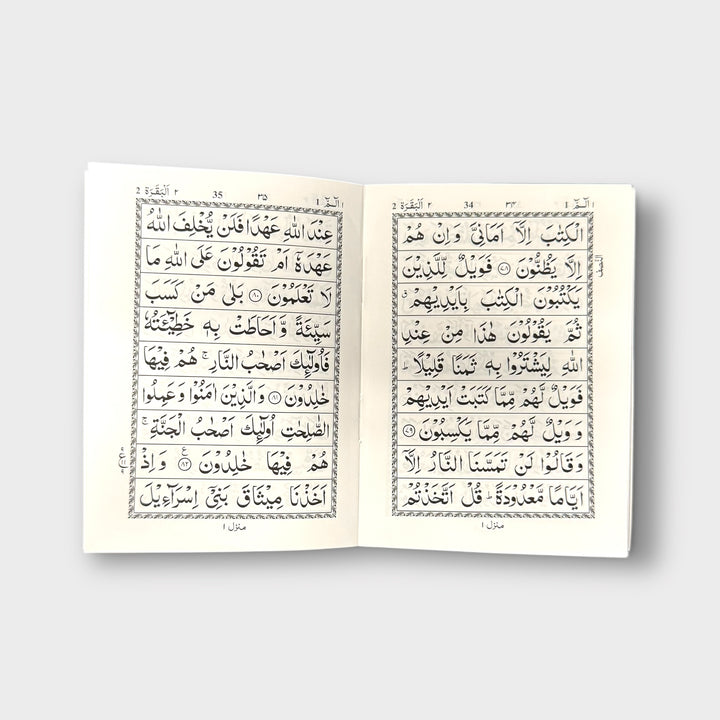 ۱ الٓمّٓ 1 ۳۴ 34 ۲ اَلْبَقَرَة 2
الْكِتٰبَ اِلَّاۤ اَمَانِیَّ وَاِنْ هُمْ
اِلَّا یَظُنُّوْنَ ﴿۷۸﴾ فَوَیْلٌ لِّلَّذِیْنَ
یَكْتُبُوْنَ الْكِتٰبَ بِاَیْدِیْهِمْ ۗ
ثُمَّ یَقُوْلُوْنَ هٰذَا مِنْ عِنْدِ
اللّٰهِ لِیَشْتَرُوْا بِهٖ ثَمَنًا قَلِیْلًا ؕ
فَوَیْلٌ لَّهُمْ مِّمَّا كَتَبَتْ اَیْدِیْهِمْ
وَوَیْلٌ لَّهُمْ مِّمَّا یَكْسِبُوْنَ ﴿۷۹﴾
وَقَالُوْا لَنْ تَمَسَّنَا النَّارُ اِلَّاۤ
اَیَّامًا مَّعْدُوْدَةً ؕ قُلْ اَتَّخَذْتُمْ
منزل ۱
۱ الٓمّٓ 1 ۳۵ 35 ۲ اَلْبَقَرَة 2
عِنْدَ اللّٰهِ عَهْدًا فَلَنْ یُّخْلِفَ اللّٰهُ
عَهْدَهٗۤ اَمْ تَقُوْلُوْنَ عَلَی اللّٰهِ مَا
لَا تَعْلَمُوْنَ ﴿۸۰﴾ بَلٰی مَنْ كَسَبَ
سَیِّئَةً وَّاَحَاطَتْ بِهٖ خَطِیْٓـَٔتُهٗ
فَاُولٰٓئِكَ اَصْحٰبُ النَّارِ ۚ هُمْ فِیْهَا
خٰلِدُوْنَ ﴿۸۱﴾ وَالَّذِیْنَ اٰمَنُوْا وَعَمِلُوا
الصّٰلِحٰتِ اُولٰٓئِكَ اَصْحٰبُ الْجَنَّةِ ۚ
هُمْ فِیْهَا خٰلِدُوْنَ ﴿۸۲﴾ وَاِذْ
اَخَذْنَا مِیْثَاقَ بَنِیْۤ اِسْرَآءِیْلَ
منزل ۱